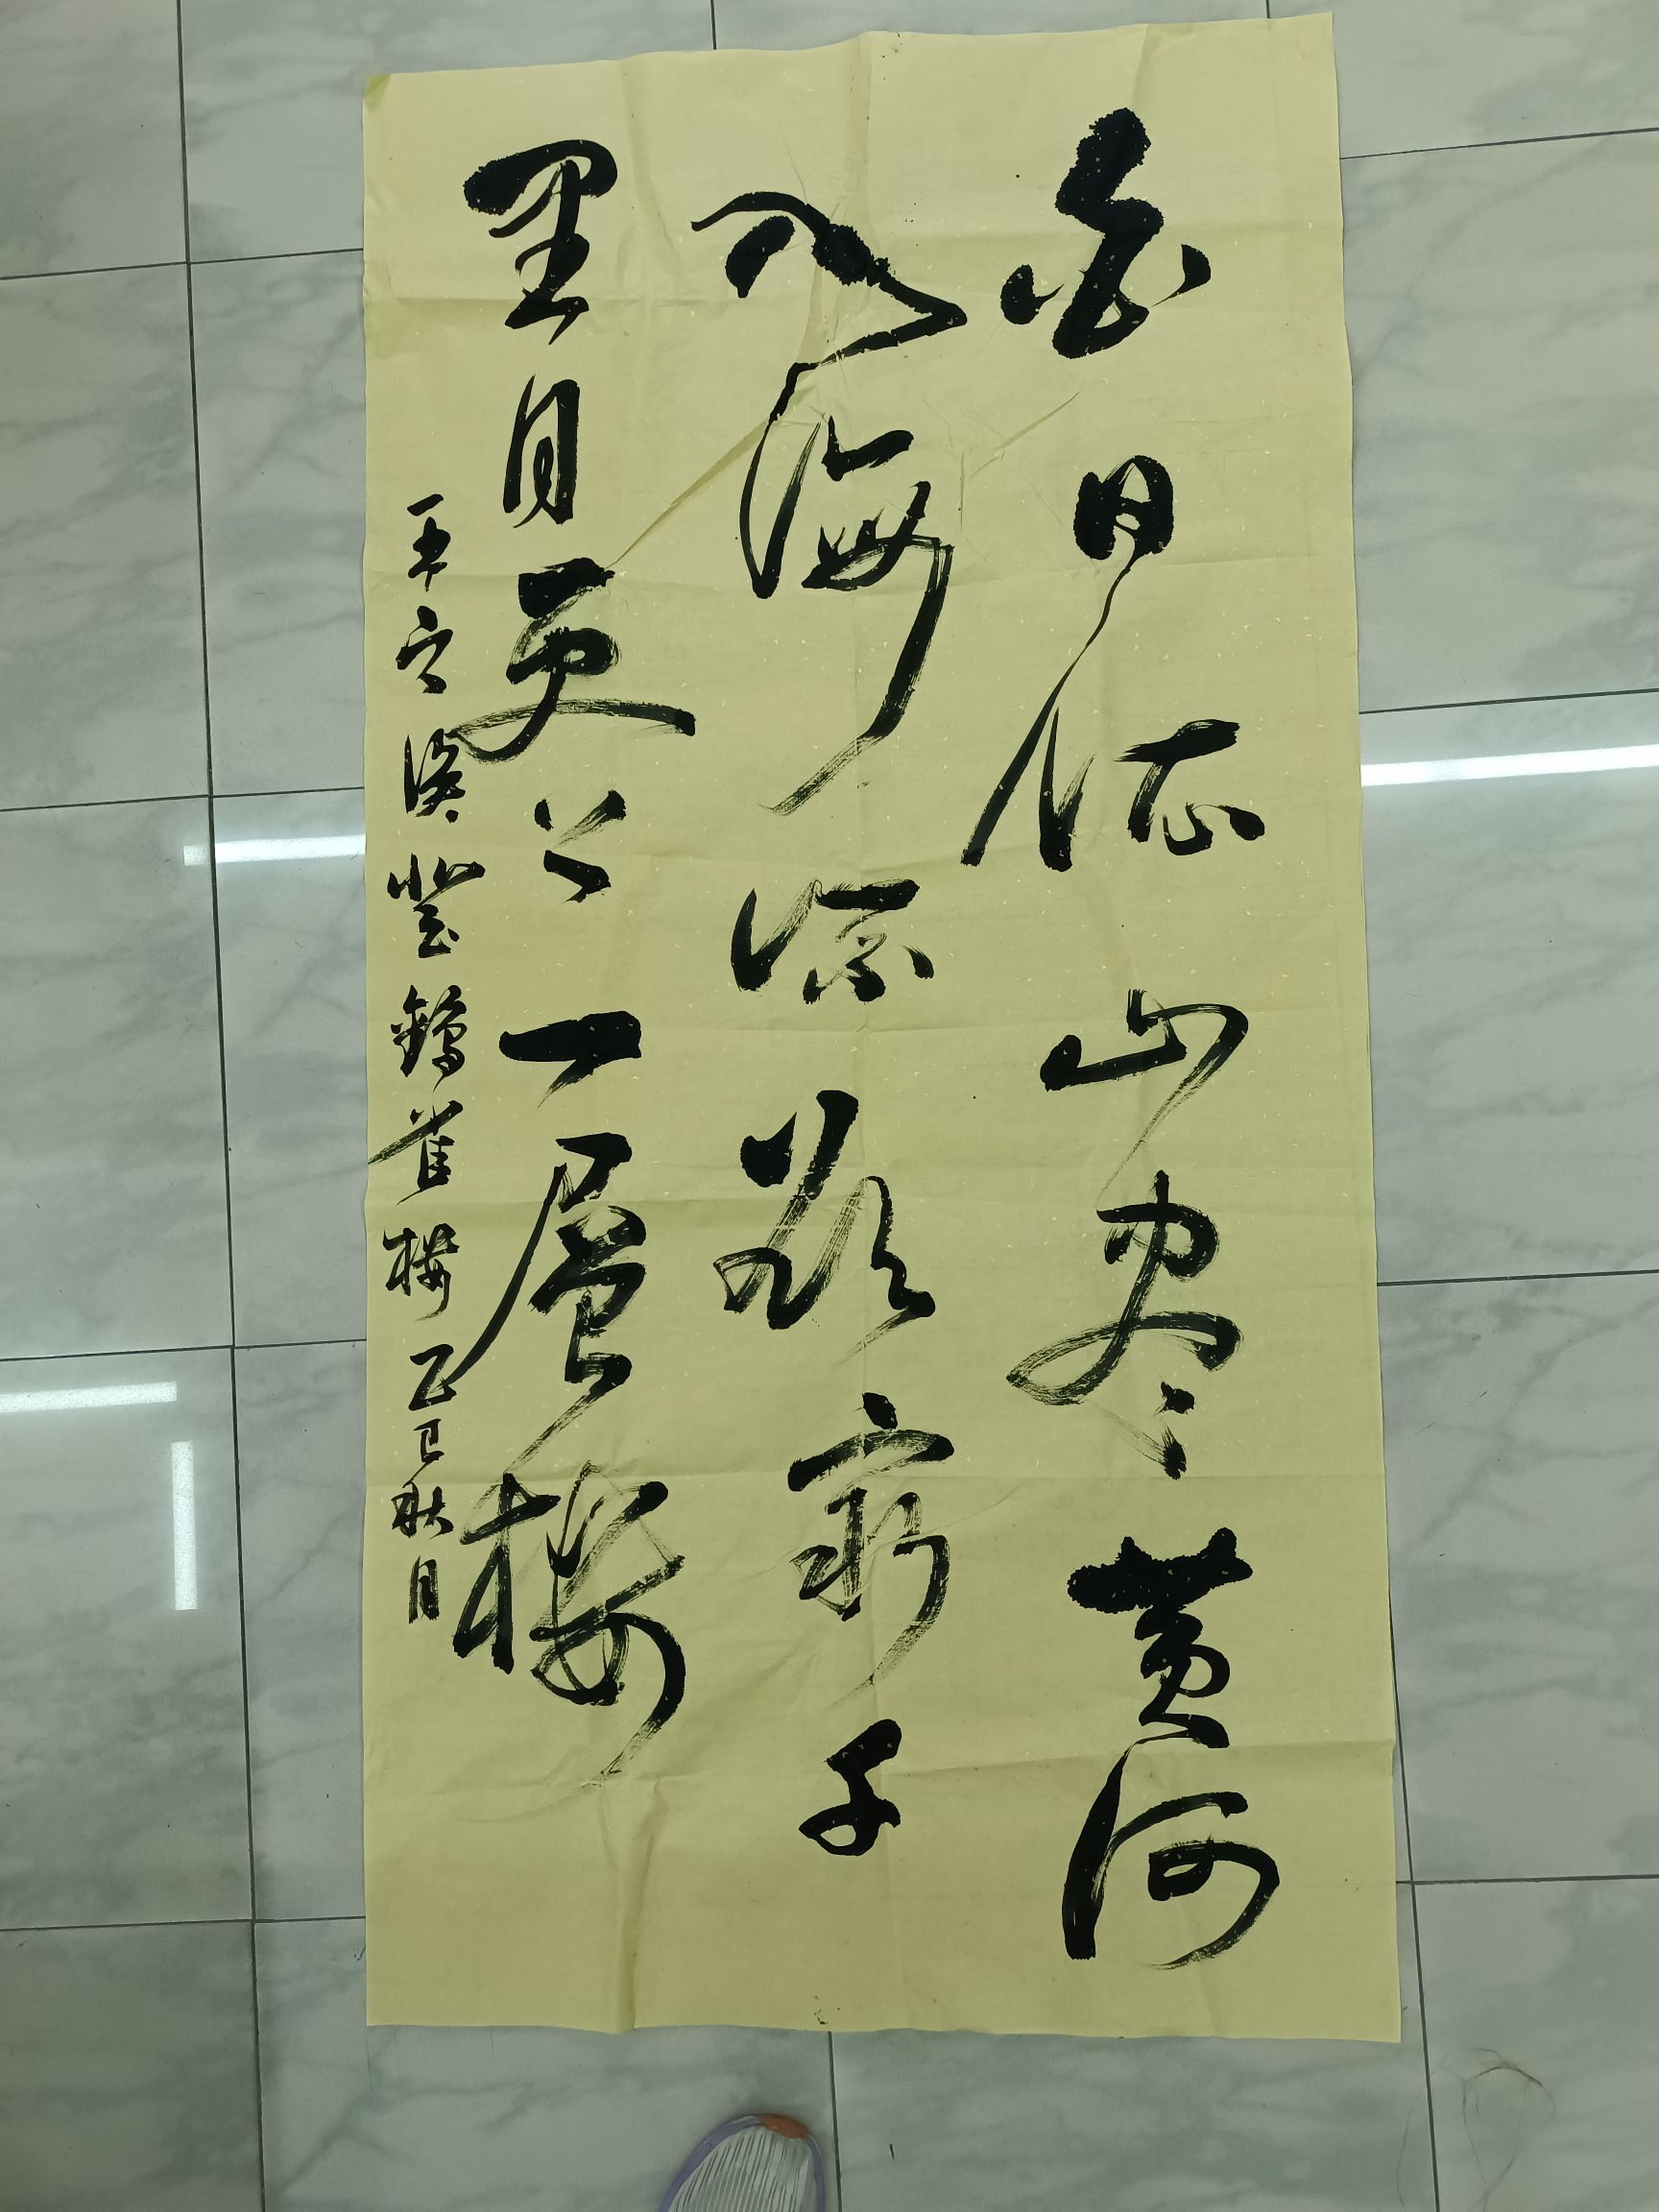 白日依山尽黄河
入海流欲穷千
里目更上一层楼
王之涣登鹳雀楼 乙巳秋月